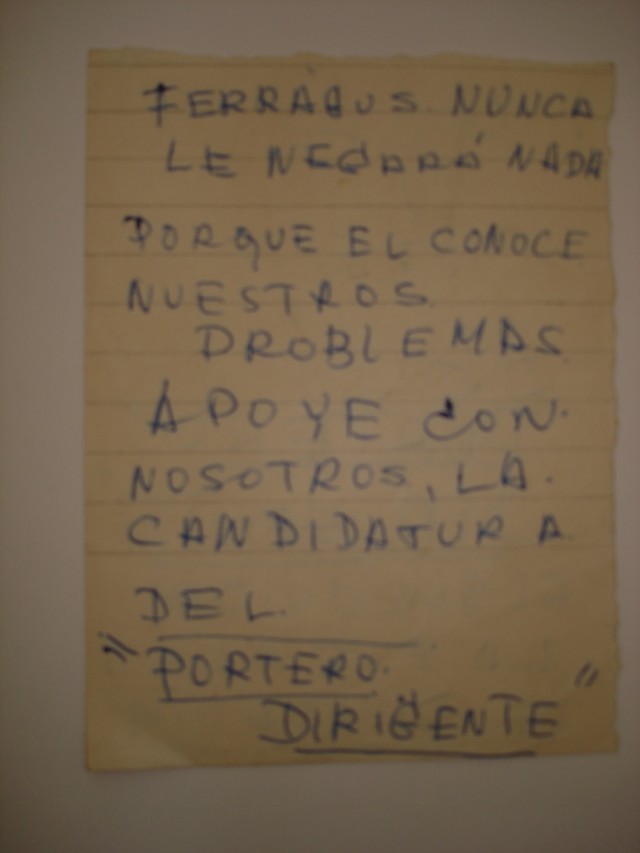 FERRAGUS NUNCA
LE NEGARÁ NADA
PORQUE EL CONOCE
NUESTROS
PROBLEMAS
APOYE CON
NOSOTROS, LA
CANDIDATURA
DEL
"PORTERO
DIRIGENTE"